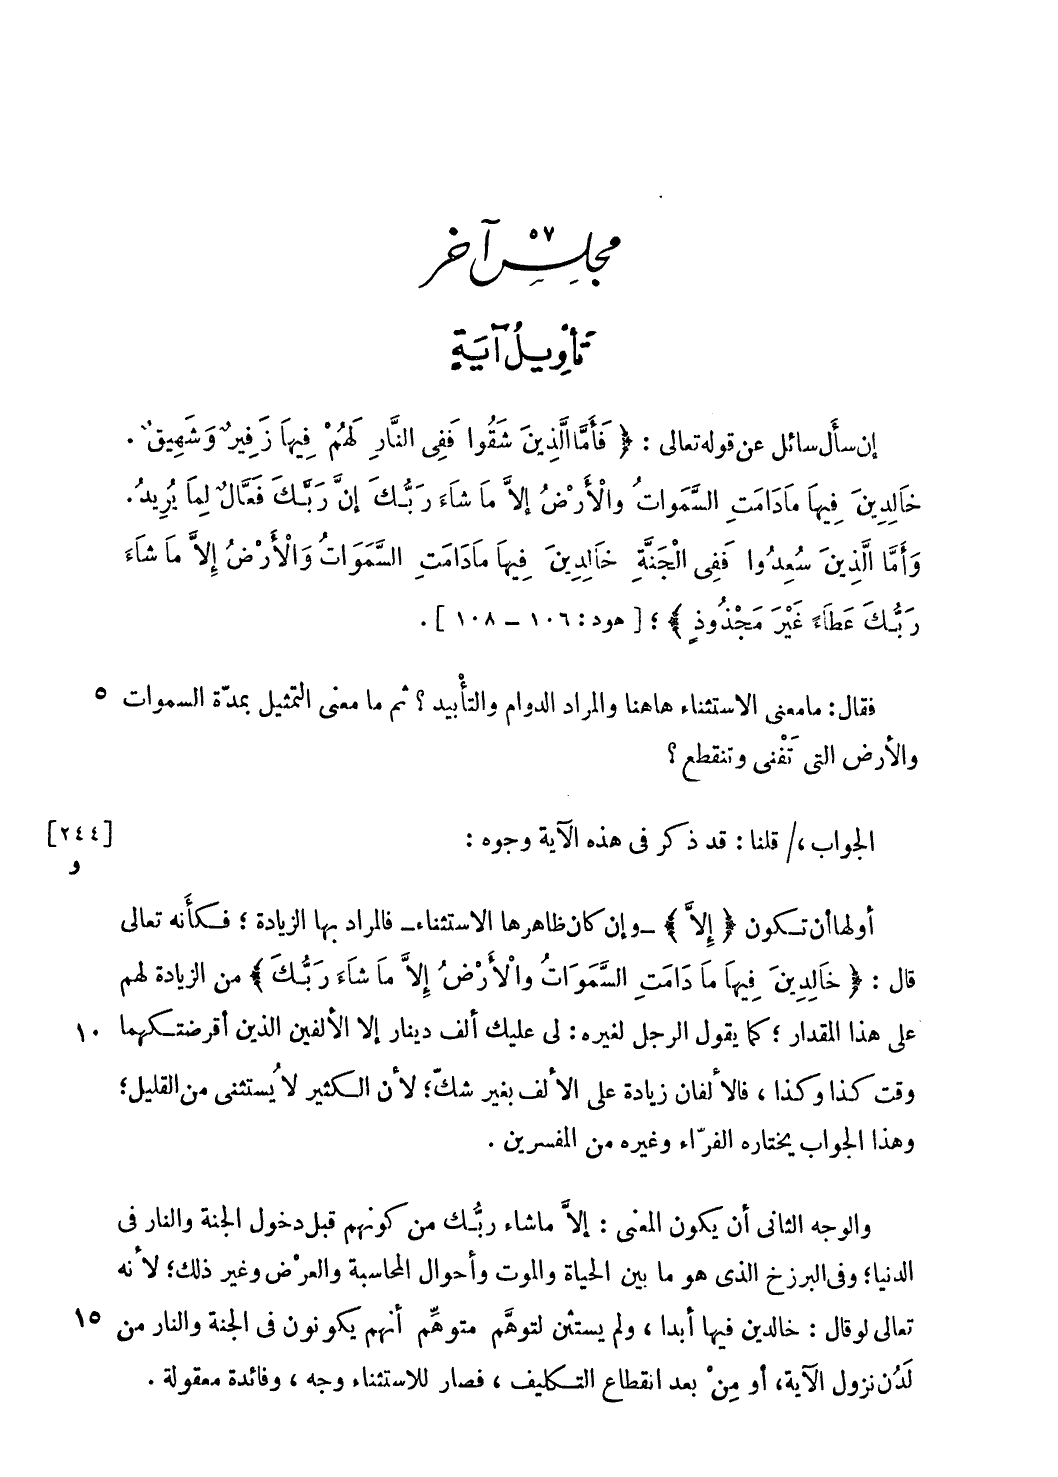 ٥٧
مجلس آخر
تَأْوِيلُ آيَةٍ
إن سأَل سائل عن قوله تعالى : ﴿ فَأَمَّا الَّذِينَ شَقُوا فَفِى النَّارِ لَهُمْ فِيهَا زَفِيرٌ وَشَهِيقٌ .
خَالِدِينَ فِيهَا مَادَامَتِ السَّمَوَاتُ والْأَرْضُ إلاَّ مَا شَاءَ رَبُّكَ إنَّ رَبَّكَ فَعَّالٌ لِمَا يُرِيدُ.
وَأَمَّا الَّذِينَ سُعِدُوا فَفِى الْجَنَّةِ خَالِدِينَ فِيهَا مَادَامَتِ السَّمَوَاتُ وَالْأَرْضُ إلاَّ مَا شَاءَ
رَبُّكَ عَطَاءً غَيْرَ مَجْذُوذٍ ﴾ ؛ [ هود : ١٠٦ – ١٠٨ ] .
فقال : مامعنى الاستثناء هاهنا والمراد الدوام والتأْبيد ؟ ثم ما معنى التمثيل بمدّة السموات ٥
والأرض التى تَفْنى وتنقطع ؟
الجواب ،/ قلنا : قد ذكر فى هذه الآية وجوه : [٢٤٤]
و
أولها أن تكون ﴿ إِلاَّ ﴾ –وإن كان ظاهرها الاستثناء– فالمراد بها الزيادة ؛ فكأَنه تعالى
قال : ﴿ خَالِدِينَ فِيهَا مَا دَامَتِ السَّمَوَاتُ والْأَرْضُ إِلاَّ مَا شَاءَ رَبُّكَ ﴾ من الزيادة لهم
على هذا المقدار ؛ كما يقول الرجل لغيره : لى عليك ألف دينار إلا الألفين الذين أقرضتكهما ١٠
وقت كذا وكذا ، فالألفان زيادة على الألف بغير شكّ؛ لأن الكثير لا يُستثنى من القليل؛
وهذا الجواب يختاره الفرّاء وغيره من المفسرين .
والوجه الثانى أن يكون المعنى : إلاَّ ماشاء ربُّك من كونهم قبل دخول الجنة والنار فى
الدنيا؛ وفى البرزخ الذى هو ما بين الحياة والموت وأحوال المحاسبة والعرْض وغير ذلك؛ لأنه
تعالى لوقال : خالدين فيها أبدا ، ولم يستثن لتوهَّم متوهِّم أنهم يكونون فى الجنة والنار من ١٥
لَدُن نزول الآية، أو مِنْ بعد انقطاع التكليف ، فصار للاستثناء وجه ، وفائدة معقولة .